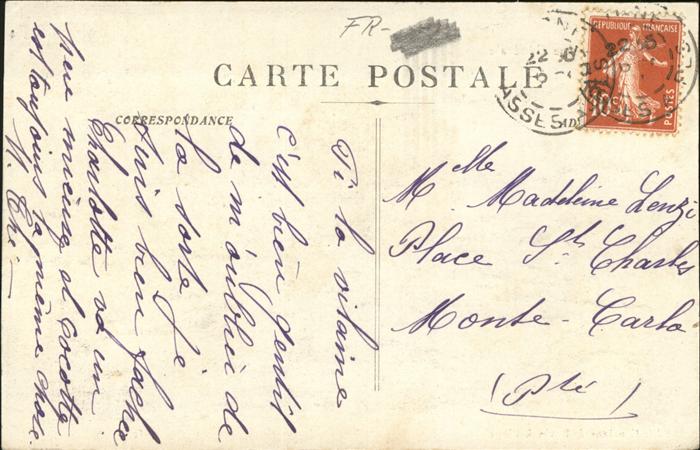 FR-
CARTE POSTALE
CORRESPONDANCE
RÉPUBLIQUE FRANÇAISE
10
POSTES
22
ASSES
Ti la vilaine
c'est bien gentil
de m'oublier de
la sorte je
suis bien fachée
Charlotte va un
peu mieux et Cocotte
est toujours la même chose
Mlle Madeleine Lenzi
Place St Charles
Monte-Carlo
(Pté)